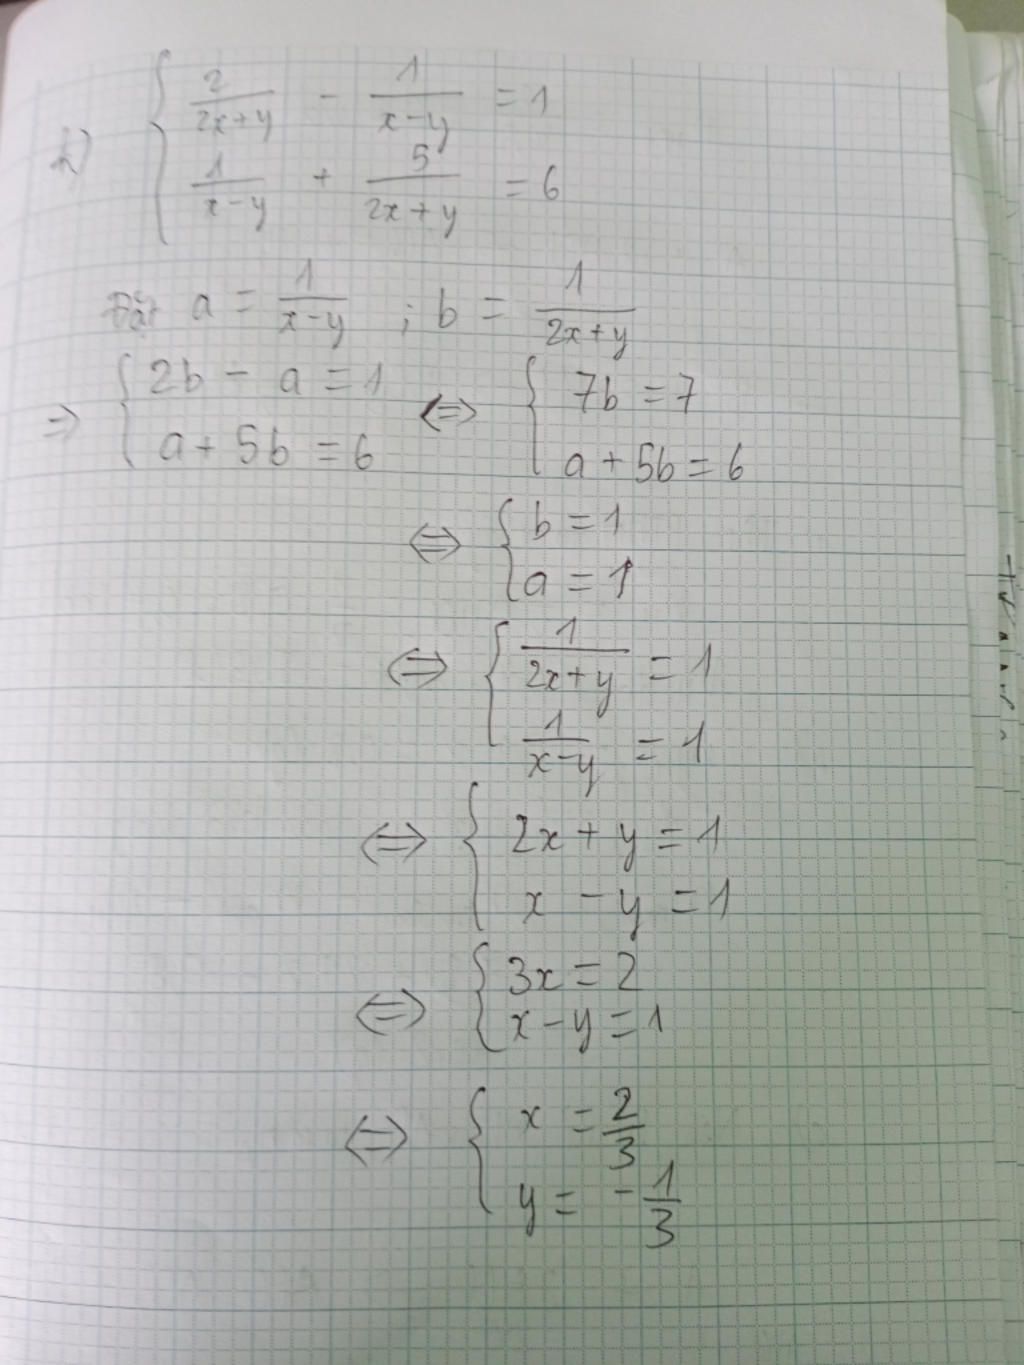 h) { 2/(2x+y) - 1/(x-y) = 1
1/(x-y) + 5/(2x+y) = 6
Đặt a = 1/(x-y) ; b = 1/(2x+y)
⇒ { 2b - a = 1 ⇔ { 7b = 7
a + 5b = 6 a + 5b = 6
⇔ { b = 1
a = 1
⇔ { 1/(2x+y) = 1
1/(x-y) = 1
⇔ { 2x + y = 1
x - y = 1
⇔ { 3x = 2
x - y = 1
⇔ { x = 2/3
y = - 1/3